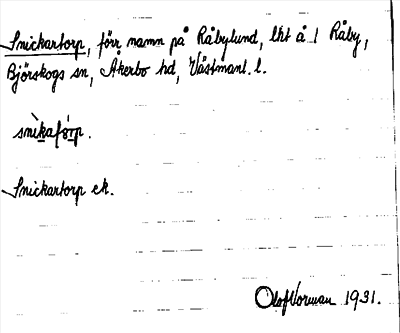 Snickartorp, förr namn på Råbylund, lht å 1 Råby,
Björskogs sn, Åkerbo hd, Västmanl. l.
snìkatórp.
Snickartorp ek.
Olof Vorman 1931.